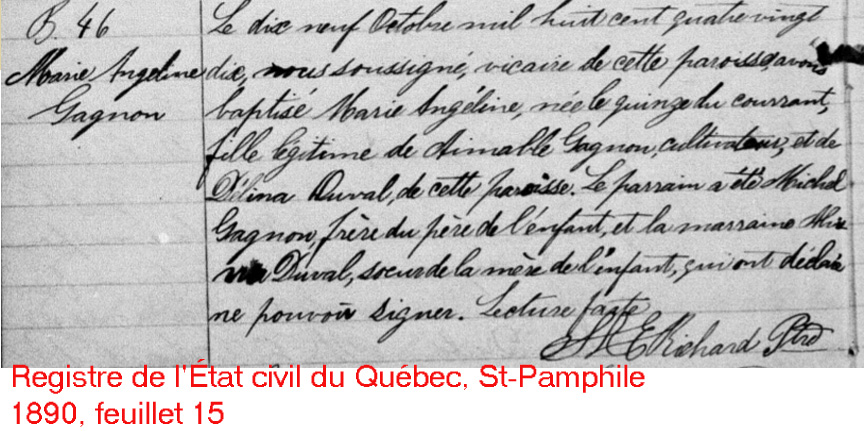 B. 46
Marie Angeline
Gagnon
Le dix neuf Octobre mil huit cent quatre vingt
dix, nous soussigné, vicaire de cette paroisse, avons
baptisé Marie Angéline, née le quinze du courrant,
fille légitime de Aimable Gagnon, cultivateur, et de
Délina Duval, de cette paroisse. Le parrain a été Michel
Gagnon, frère du père de l'enfant, et la marraine
Duval, soeur de la mère de l'enfant, qui ont déclaré
ne pouvoir signer. Lecture faite
Richard Ptre
Registre de l'État civil du Québec, St-Pamphile
1890, feuillet 15